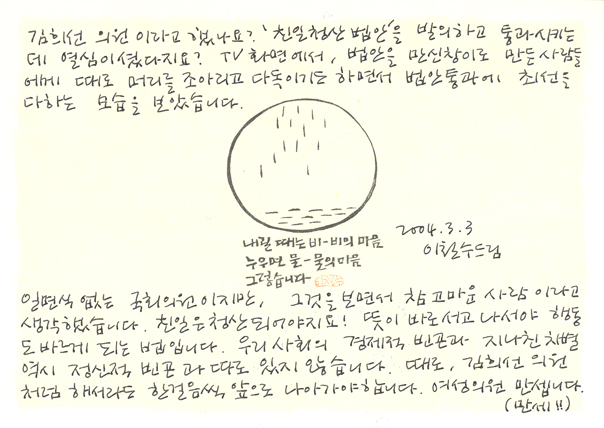 김희선 의원 이라고 했나요? '친일청산 법안'을 발의하고 통과시키는
데 열심이셨다지요? TV 화면에서, 법안을 만신창이로 만든 사람들
에게 때로 머리를 조아리고 다독이기도 하면서 법안통과에 최선을
다하는 모습을 보았습니다.
내릴 때는 비-비의 마음
누우면 물-물의 마음
그렇습니다
2004.3.3
이철수드림
일면식 없는 국회의원이지만, 그것을 보면서 참 고마운 사람이라고
생각했습니다. 친일은 청산되어야지요! 뜻이 바로서고 나서야 행동
도 바르게 되는 법입니다. 우리 사회의 경제적 빈곤과 지나친 차별
역시 정신적 빈곤과 따로 있지 않습니다. 때로, 김희선 의원
처럼 해서라도 한걸음씩 앞으로 나아가야합니다. 여성의원 만셉니다.
(만세!!)